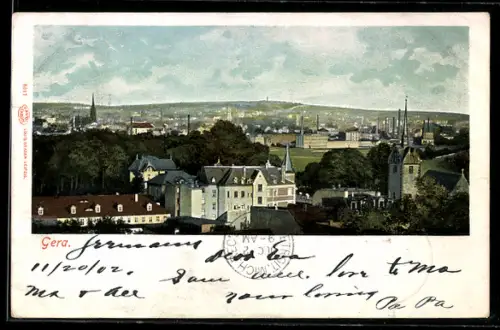 Gera.
Germany
11/20/02.
Dear Eva
I am well. love to Ma
Ma & all
your loving
Pa Pa